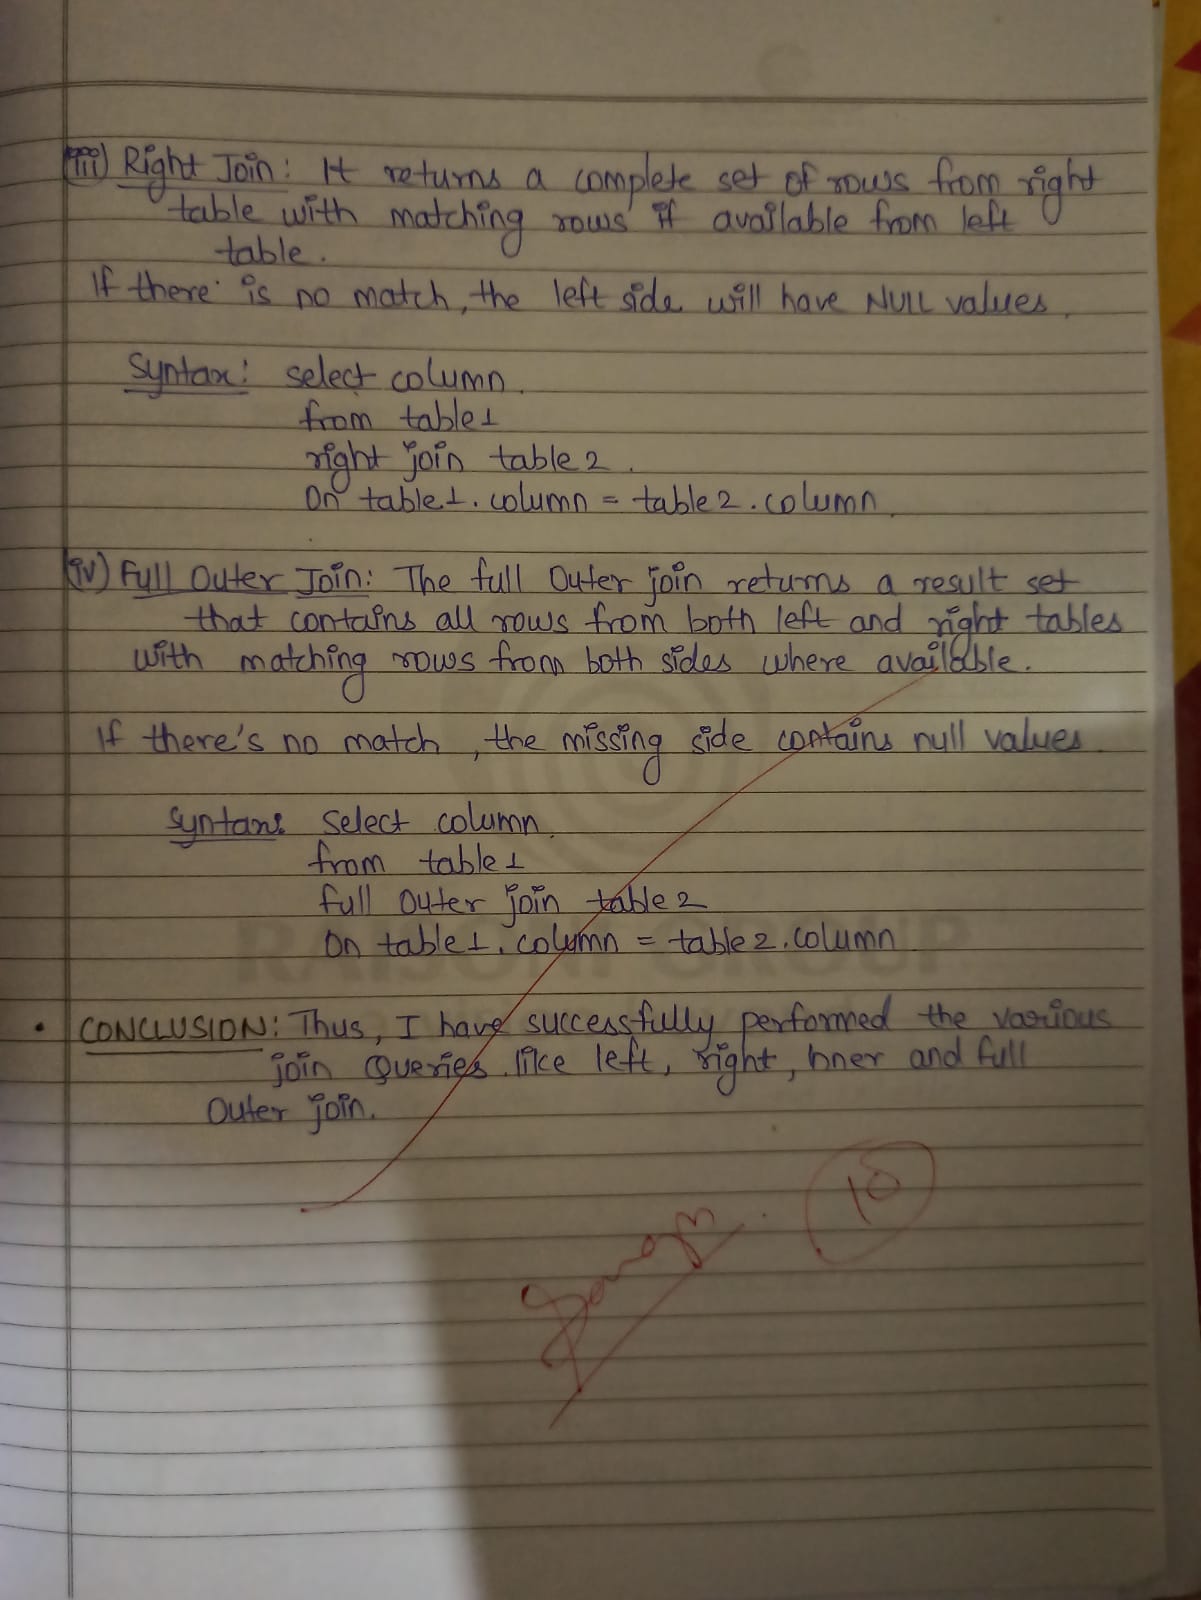 iii) Right Join: It returns a complete set of rows from right
table with matching rows if available from left
table.
If there is no match, the left side will have NULL values.
Syntax: select column
from table1
right join table2.
On table1.column = table2.column
iv) Full Outer Join: The full Outer join returns a result set
that contains all rows from both left and right tables
with matching rows from both sides where available.
If there's no match, the missing side contains null values
Syntax: Select column
from table1
full outer join table2
On table1.column = table2.column
RAISONI GROUP
• CONCLUSION: Thus, I have successfully performed the various
join Queries like left, right, Inner and full
Outer join.
10